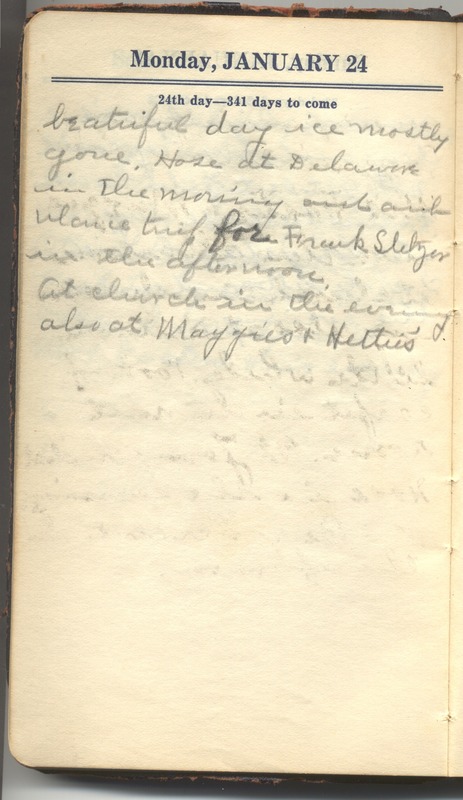 Monday, JANUARY 24
24th day—341 days to come
beatriful day ice mostly
gone. Hose at Delaware
in the morning and amb
ulance trip for Frank Sletzer
in the afternoon.
At church in the evening
also at Maggies & Hetties